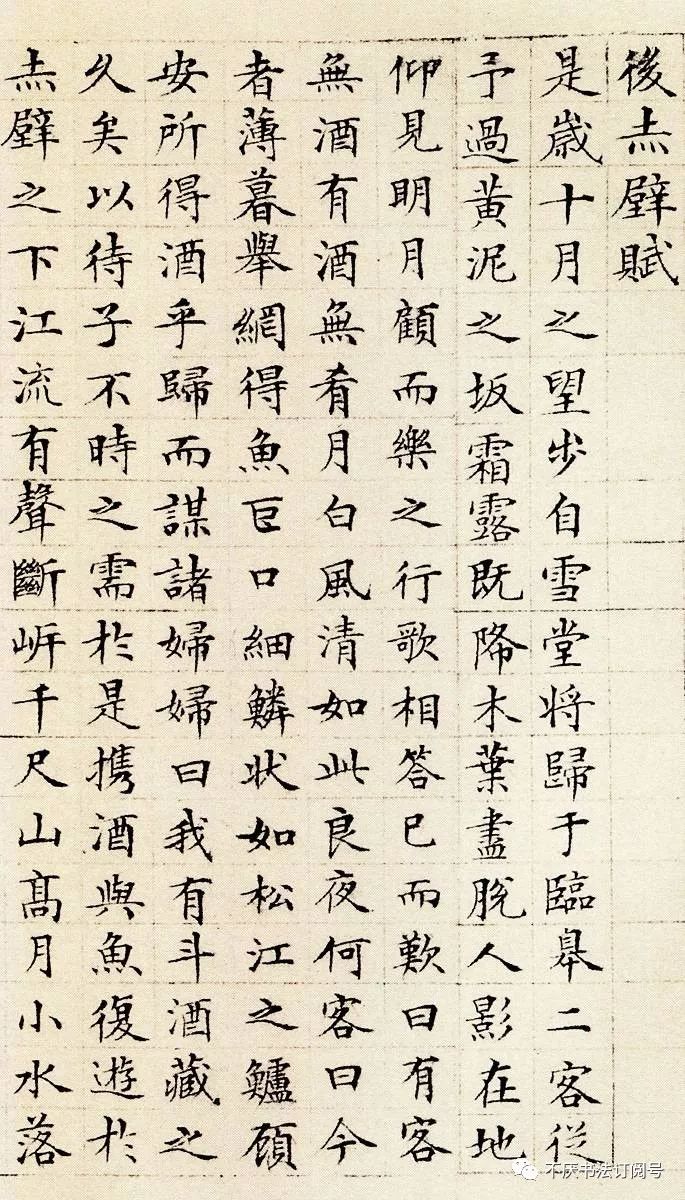 後赤壁賦
是歲十月之望步自雪堂將歸于臨皋二客從
予過黃泥之坂霜露既降木葉盡脫人影在地
仰見明月顧而樂之行歌相答已而歎曰有客
無酒有酒無肴月白風清如此良夜何客曰今
者薄暮舉網得魚巨口細鱗狀如松江之鱸顧
安所得酒乎歸而謀諸婦婦曰我有斗酒藏之
久矣以待子不時之需於是携酒與魚復遊於
赤壁之下江流有聲斷岸千尺山高月小水落
不厌书法订阅号